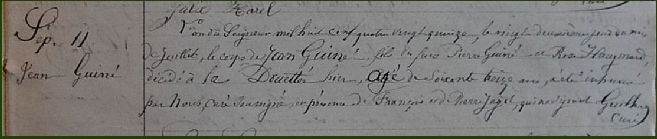 Julie Harel
Sép. 11
Jean Guiné
L'an du Seigneur mil huit cent quatre vingt quinze, le vingt deuxième jour du mois
de Juillet, le corps de Jean Guiné fils de feu Pierre Guiné et Rose
décédé à la hier, âgé de Soixante treize ans, a été inhumé
par Nous, Curé soussigné, en présence de François et de Pierre qui ont signé
Curé